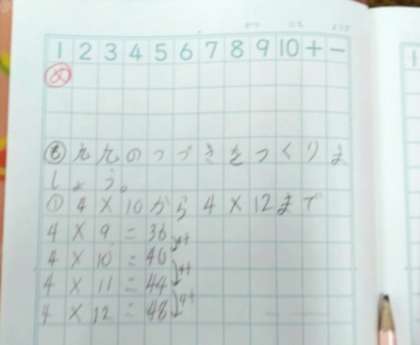 1 2 3 4 5 6 7 8 9 10 + −
め 九九のつづきをつくりま
しょう。
① 4×10から4×12まで
4×9=36
4×10=40
4×11=44
4×12=48